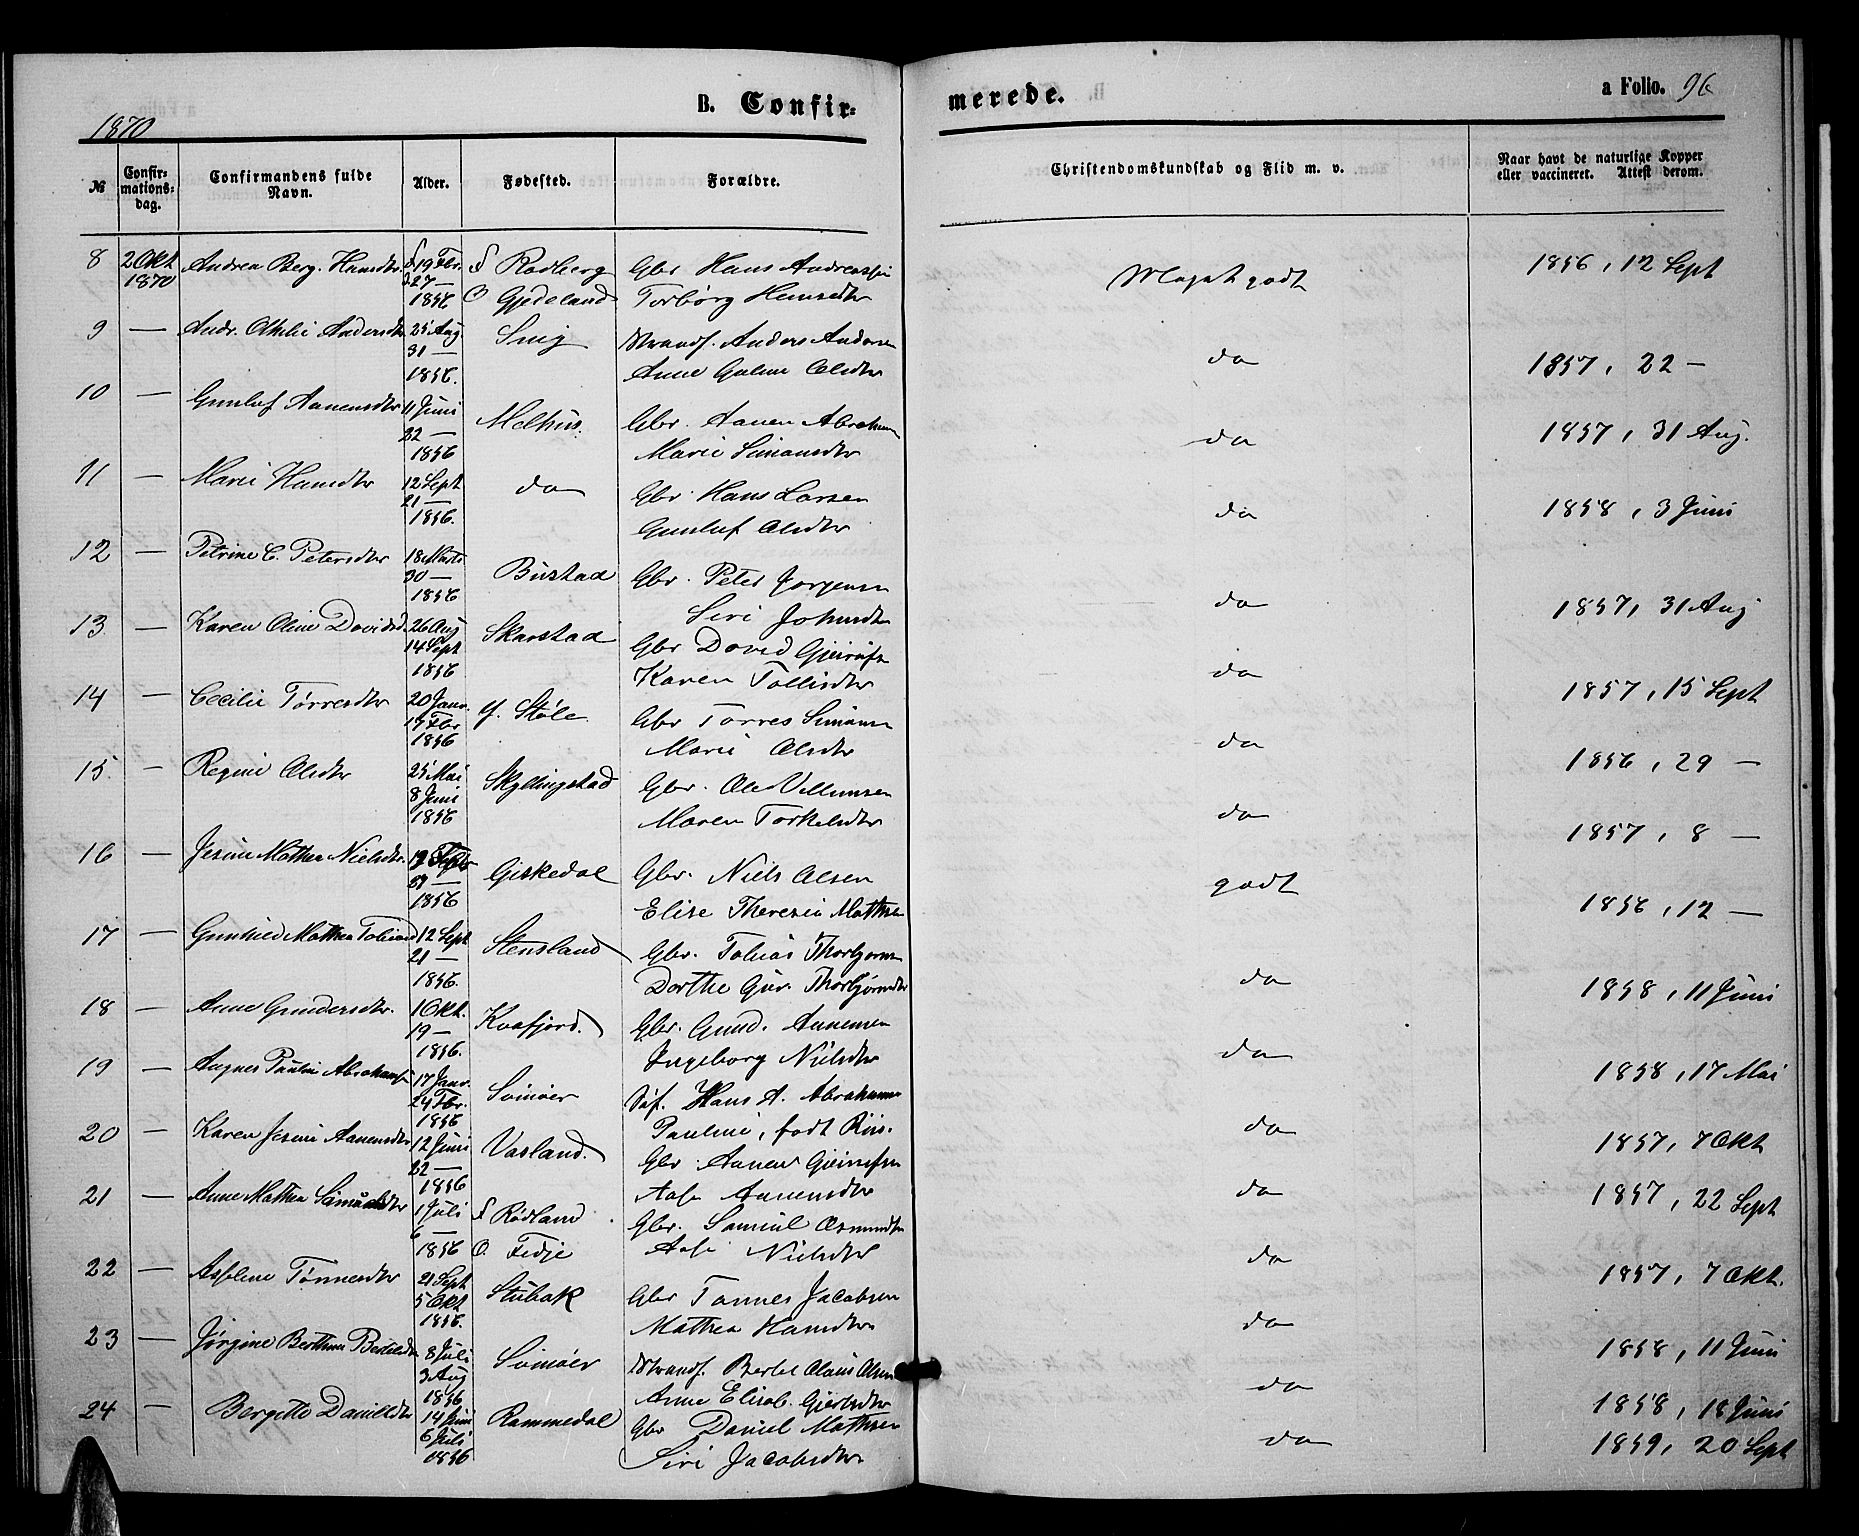 1870
B. Confir-
merede.
a Folio. 96
№
Confir-
mations-
dag.
Confirmandens fulde
Navn.
Alder.
Fødested.
Forældre.
Christendomskundskab og Flid m. v.
Naar havt de naturlige Kopper
eller vaccineret. Attest derom.
8 2 Okt Andrea Berg. Hansdtr f 19 Fbr f Rodberg Gbr Hans Andreassen Meget godt 1856, 12 Sept
1870 d 27 — O Gjedeland Torborg Hansdtr
1856
9 — Andr. Othilie Andersdtr 25 Aug Snig Strandf. Anders Andersen do 1857, 22 —
31 — Anne Guline Olsdtr
1856.
10 — Gunluf Aanensdtr 11 Juni Melhus. Gbr. Aanen Abraham do 1857, 31 Aug.
22 — Marie Simonsdtr
1856
11 — Marie Hansdtr 12 Sept do Gbr. Hans Larsen do 1858, 3 Juni
21 — Gunluf Olsdtr
1856.
12 — Petrine C. Petersdtr 18 Marts Bustad Gbr. Peter Jorgensen do 1857, 31 Aug
30 — Siri Johnsdtr
1856
13 — Karen Oline Davidsd. 26 Aug Skarstad Gbr David do 1857, 15 Sept
14 Sept Karen Tollisdtr
1856
14 — Cecilie Tørresdtr 20 Janr. Y. Støle Gbr Tørres Simonsen do 1856, 29 —
17 Fbr Marie Olsdtr
1856
15 — Regine Olsdtr 25 Mai Skyllingstad Gbr. Ole Villumsen do 1857, 8 —
8 Juni Maren Torkelsdtr
1856
16 — Jesine Mathea Nielsdtr. Giskedal Gbr. Niels Olsen godt 1856, 12 —
Elise Theresia Mathsen
1856
17 — Gunhild Mathea Tobiasd 12 Sept Stensland Gbr. Tobias Thorbjornsen do 1858, 11 Juni
21 — Dorthe Gur. Thorbjørnsdtr
1856.
18 — Anne Gundersdtr. 1 Okt. Kvafjord. Gbr. Gund. Aanensen do 1858, 17 Mai
19 — Ingeborg Nielsdtr
1856.
19 — Augnes Pauline Abrahamsen 17 Janr. Somøer Søf. Hans A. Abrahamsen do 1857, 7 Okt
24 Fbr. Pauline, født Riis.
1856
20 — Karen Jesine Aanensdtr 12 Juni Vasland. Gbr. Aanen do 1857, 22 Sept
22 — Aase Aanensdtr
1856
21 — Anne Mathea Samuelsdtr 1 Juli f Rødland Gbr. Samuel Osmundsen do 1857, 7 Okt.
6 — O. Fedje Aase Nielsdtr
1856
22 — Asseline Tønnesdtr 21 Sept Stubak Gbr Tønnes Jacobsen do 1858, 11 Juni
5 Okt Mathea Hansdtr
1856.
23 — Jørgine Berthine Bertelsdtr 8 Juli Somøer Strandf. Bertel Olaus Olsen do 1858, 18 Juni
3 Aug Anne Elisab. Gjertsdtr
1856
24 — Bergitte Danielsdtr 14 Juni Rammedal Gbr Daniel Mathsen do 1859, 20 Sept
6 Juli Siri Jacobsdtr
1856